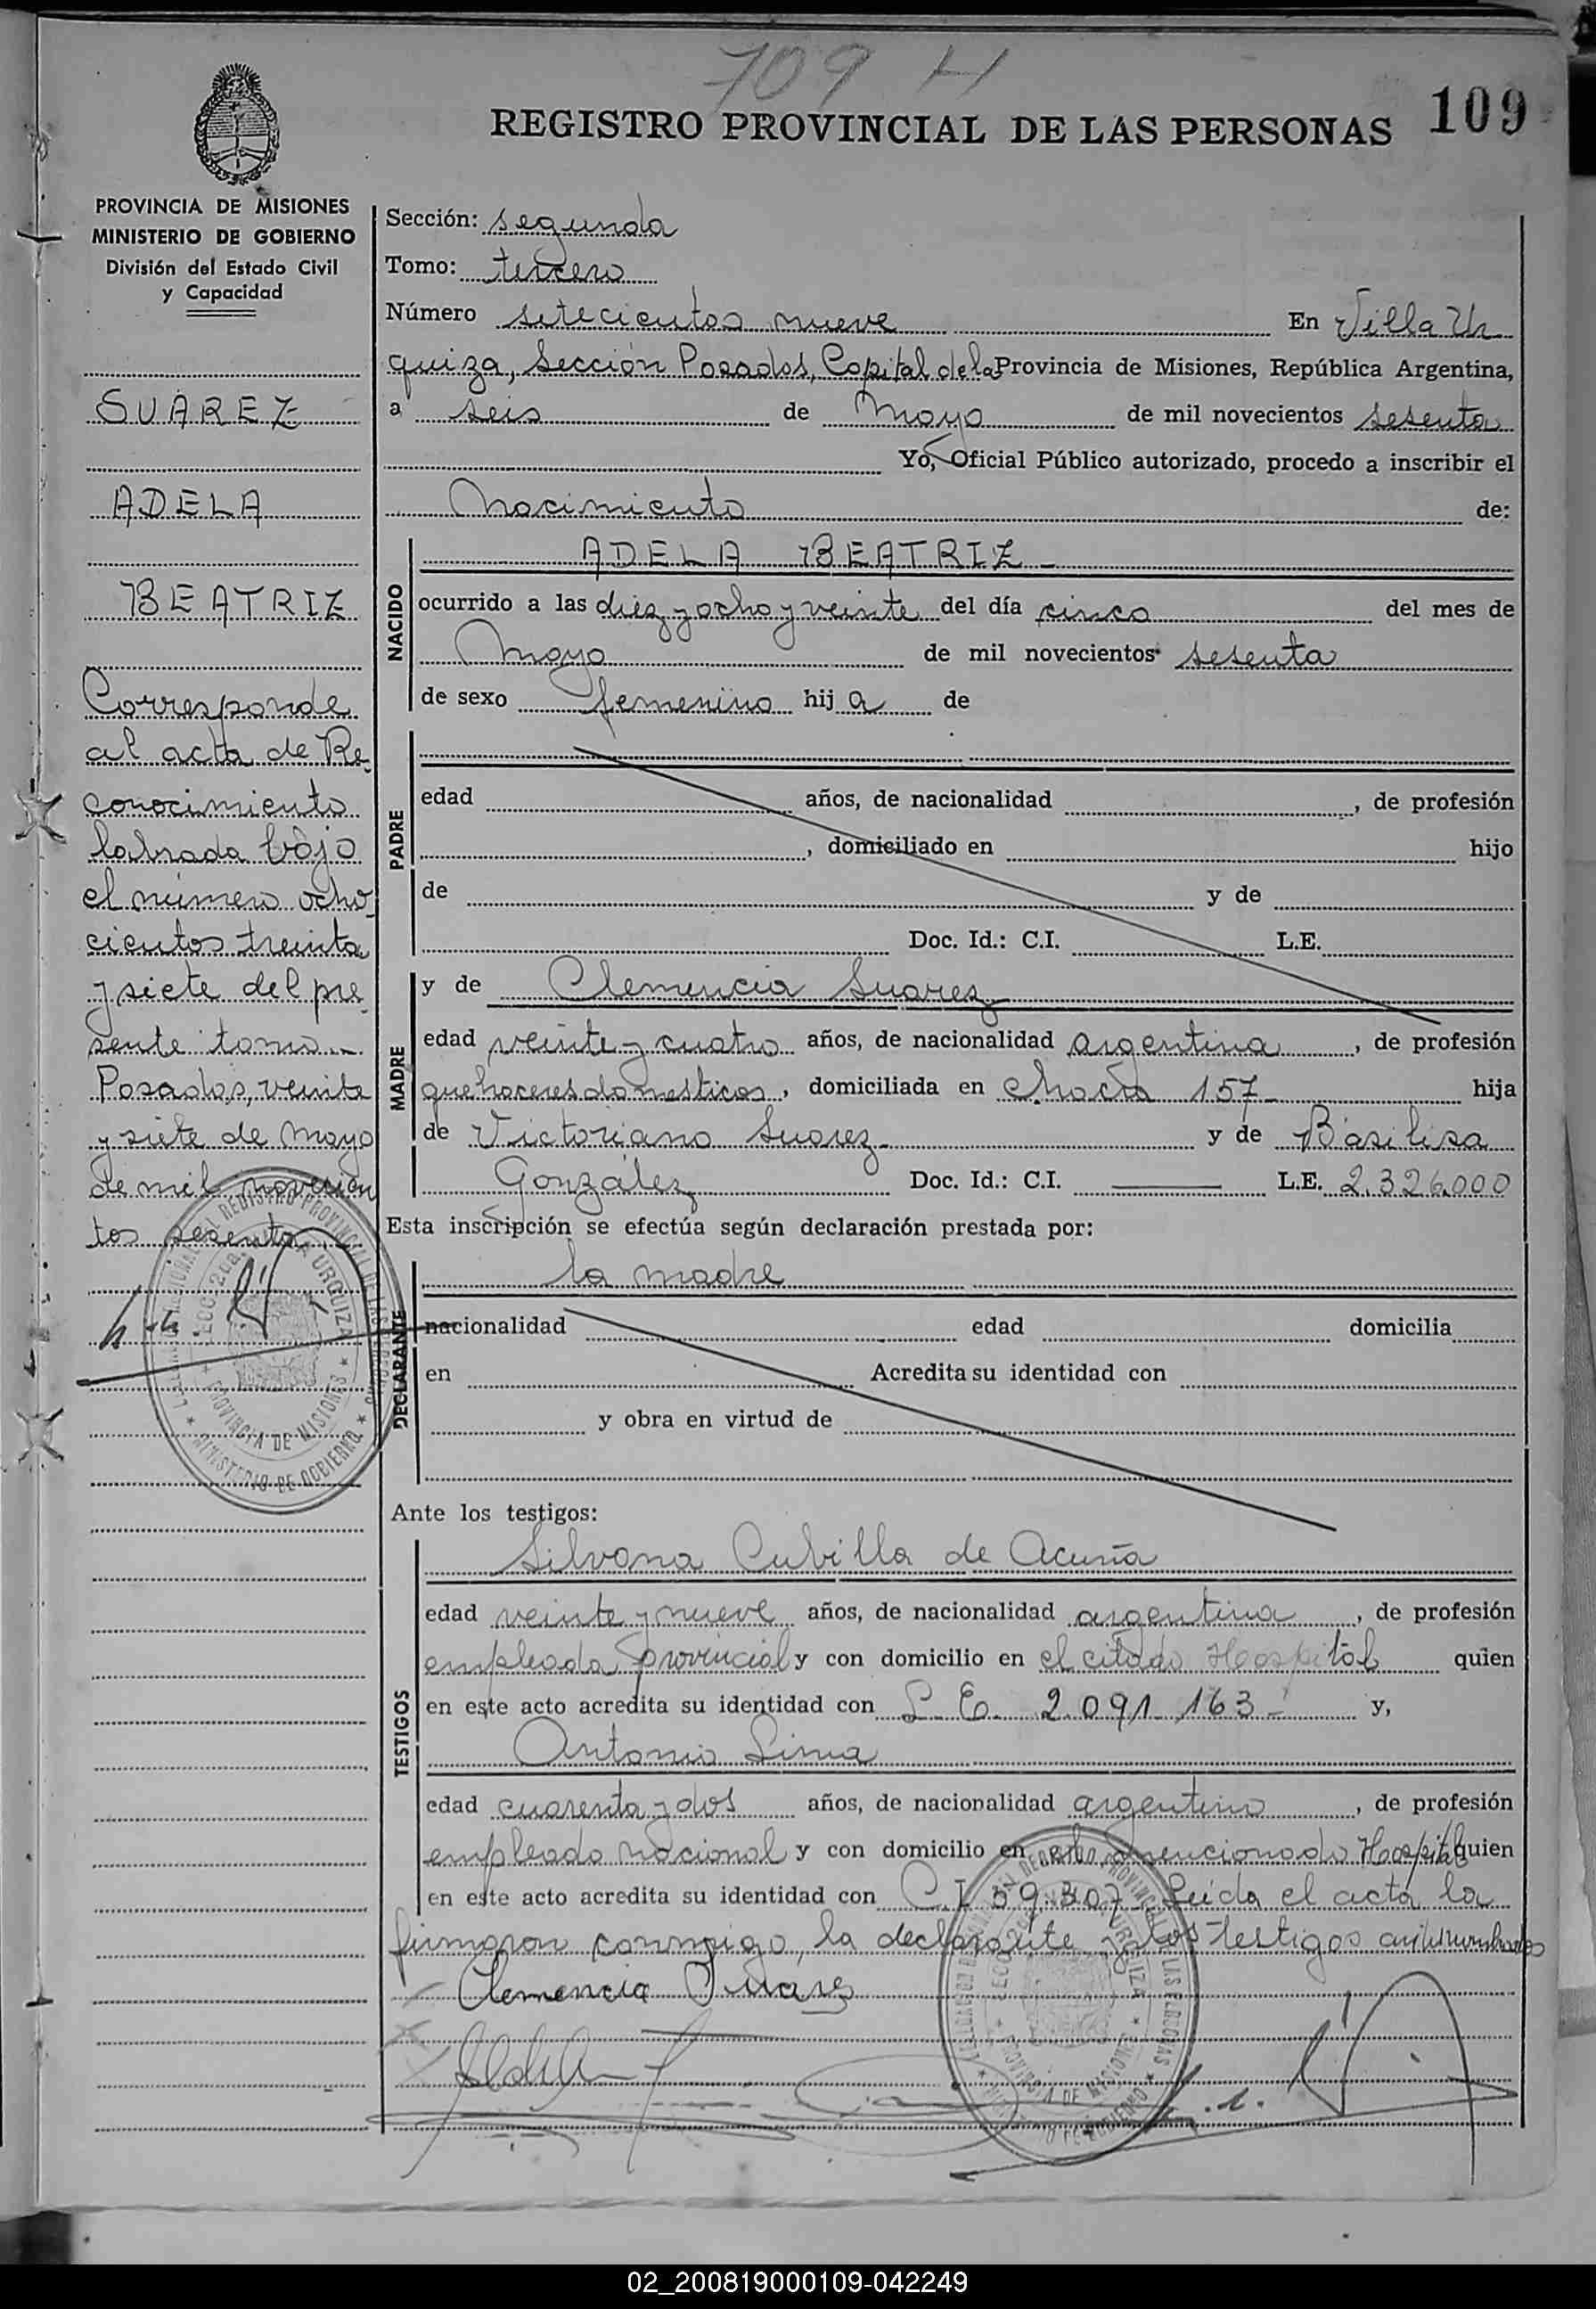 709 H
REGISTRO PROVINCIAL DE LAS PERSONAS 109
PROVINCIA DE MISIONES
MINISTERIO DE GOBIERNO
División del Estado Civil
y Capacidad
SUAREZ
ADELA
BEATRIZ
Corresponde
al acta de Re
conocimiento
labrada bajo
el número ocho
cientos treinta
y siete del pre
sente tomo.-
Posadas, veinte
y siete de mayo
de mil novecien
tos sesenta.-
Sección: segunda
Tomo: tercero
Número setecientos nueve En Villa Ur
quiza, Sección Posadas, Capital de la Provincia de Misiones, República Argentina,
a seis de Mayo de mil novecientos sesenta
Yo, Oficial Público autorizado, procedo a inscribir el
Nacimiento de:
NACIDO
ADELA BEATRIZ -
ocurrido a las diez y ocho y veinte del día cinco del mes de
Mayo de mil novecientos sesenta
de sexo femenino hij a de
PADRE
edad años, de nacionalidad , de profesión
, domiciliado en hijo
de y de
Doc. Id.: C.I. L.E.
MADRE
y de Clemencia Suarez
edad veinte y cuatro años, de nacionalidad argentina , de profesión
quehaceres domesticos , domiciliada en Chacra 157- hija
de Victoriano Suarez- y de Basilisa
González Doc. Id.: C.I. —— L.E. 2.326.000
Esta inscripción se efectúa según declaración prestada por:
DECLARANTE
la madre
nacionalidad edad domicilia
en Acredita su identidad con
y obra en virtud de
Ante los testigos:
TESTIGOS
Silvana Cubilla de Acuña
edad veinte y nueve años, de nacionalidad argentina , de profesión
empleada provincial y con domicilio en el citado Hospital quien
en este acto acredita su identidad con L. E. 2.091.163- y,
Antonio Lima
edad cuarenta y dos años, de nacionalidad argentino , de profesión
empleado nacional y con domicilio en el mencionado Hospital quien
en este acto acredita su identidad con C.I. 59.307- Leida el acta la
firmaron conmigo, la declarante y los testigos
Clemencia Suárez
REGISTRO PROVINCIAL DE LAS PERSONAS
URQUIZA
PROVINCIA DE MISIONES
MINISTERIO DE GOBIERNO
02_200819000109-042249